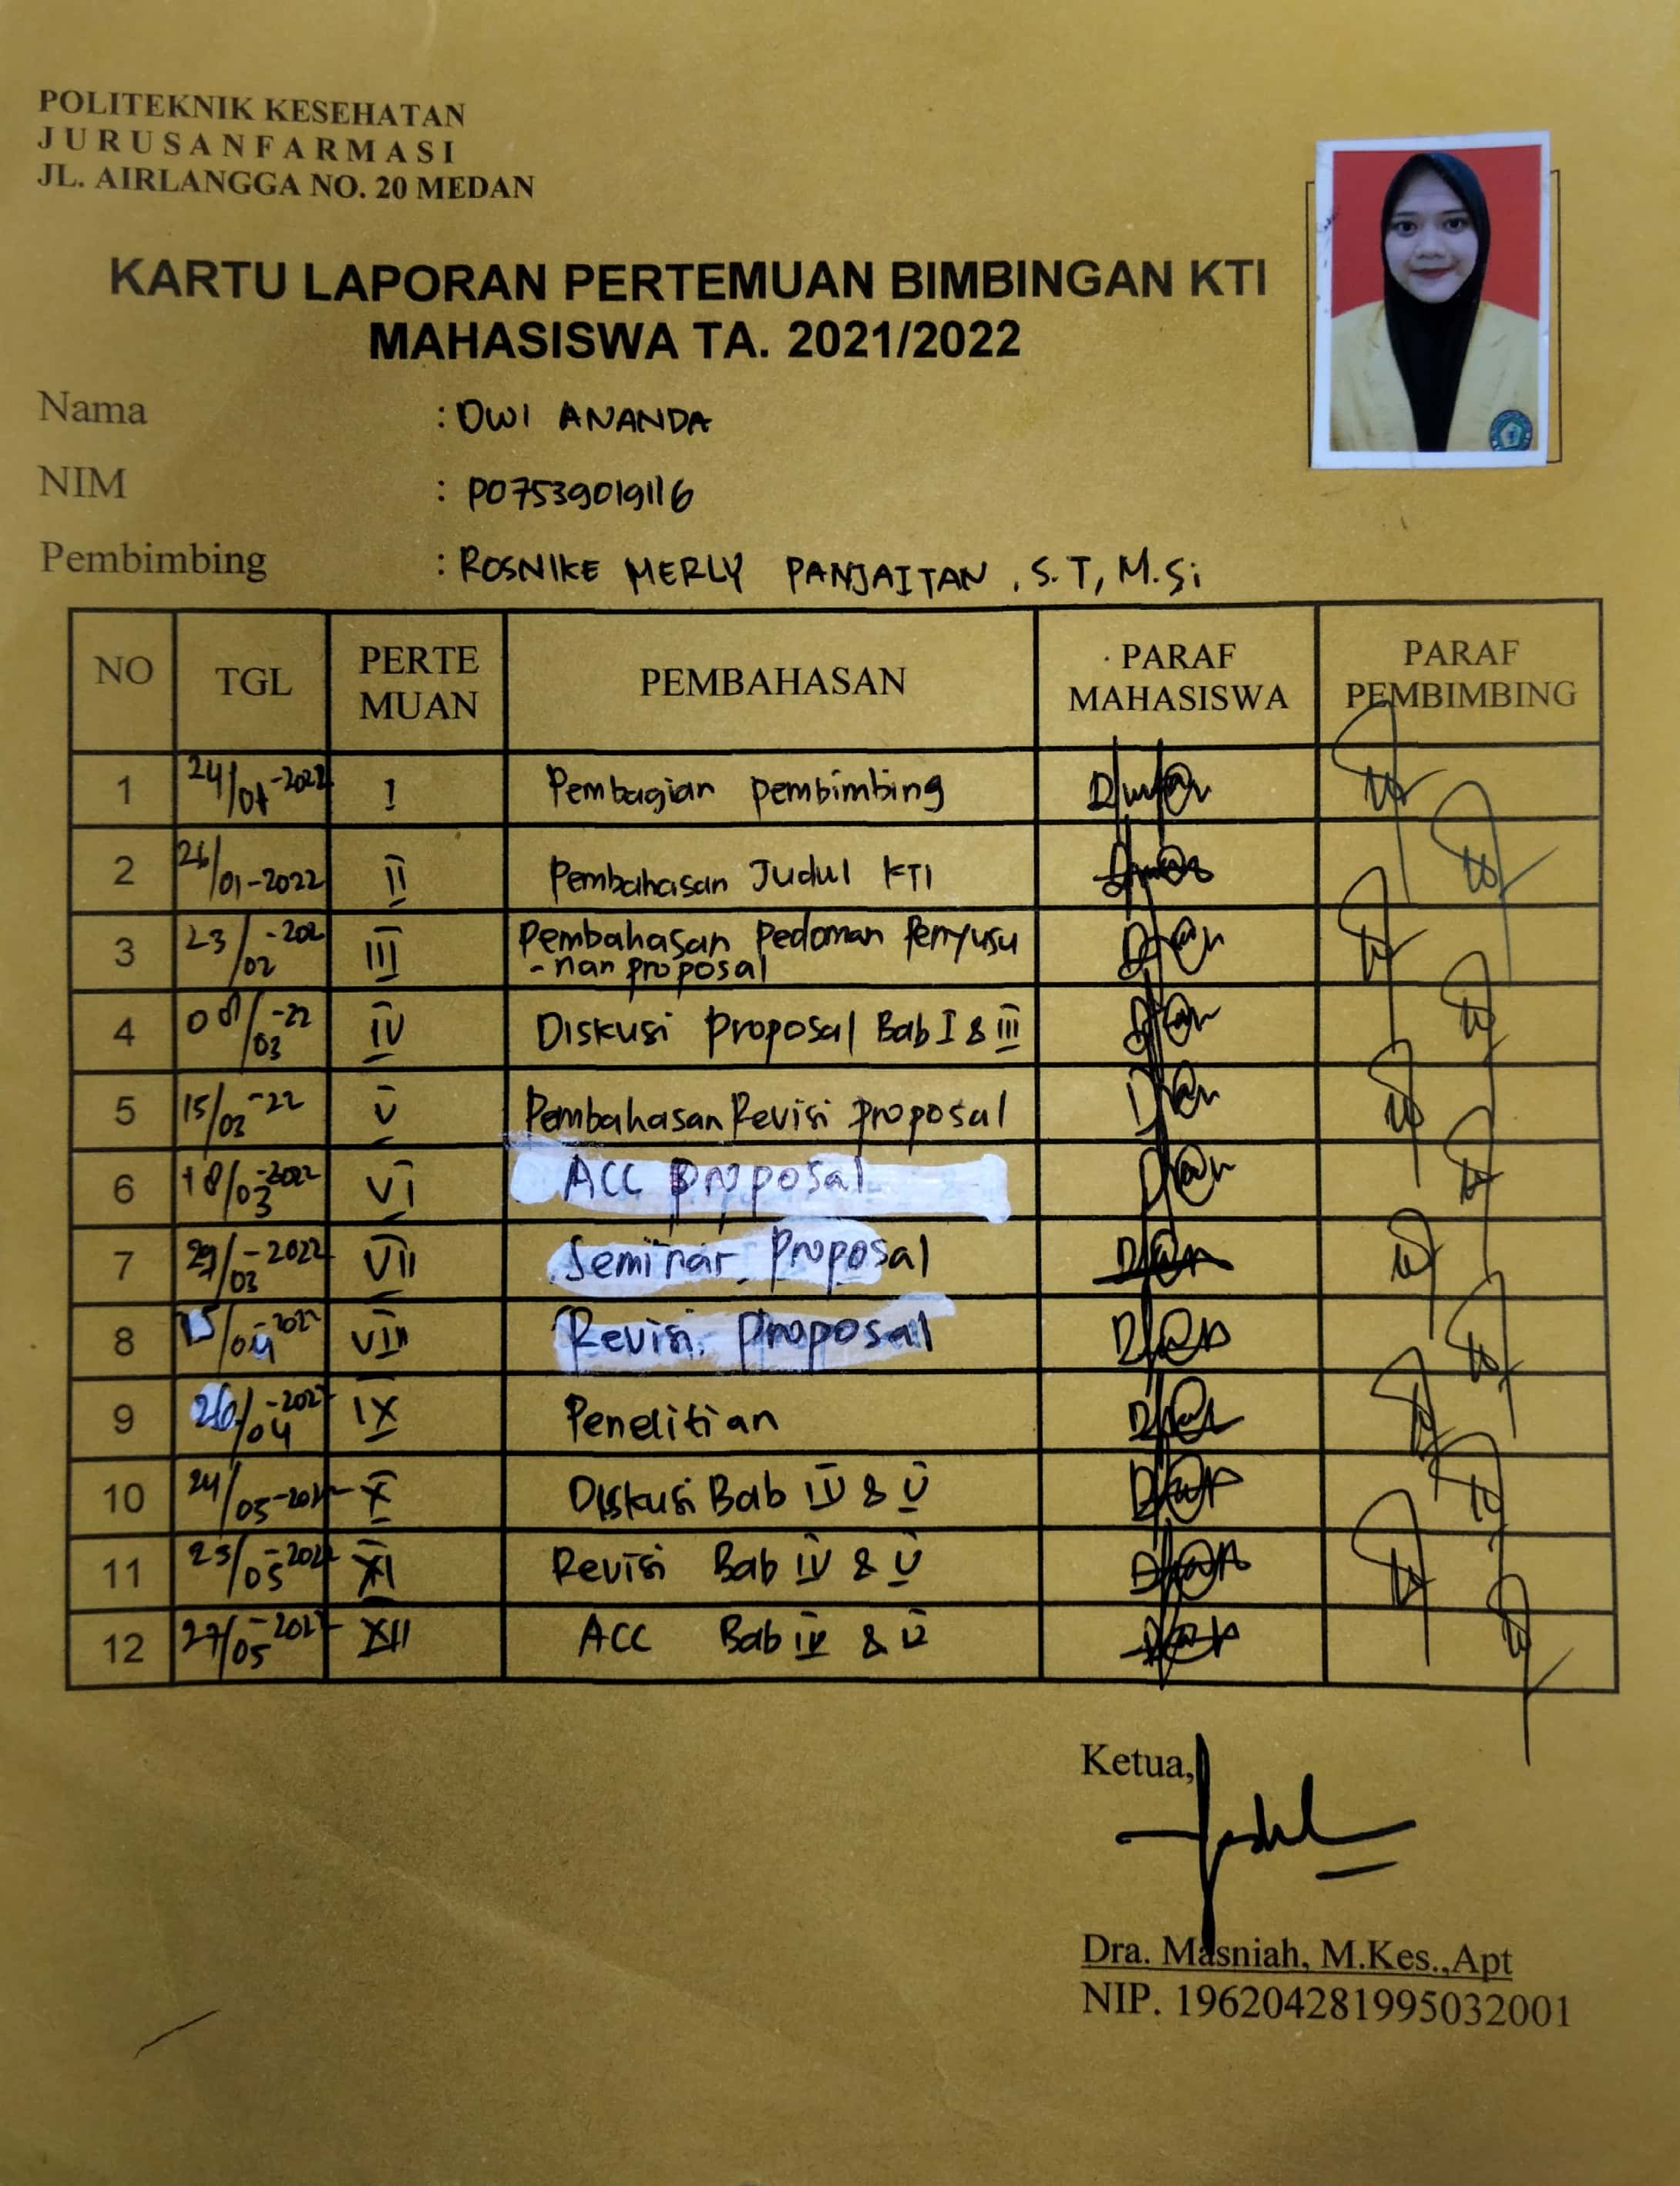 POLITEKNIK KESEHATAN
JURUSANFARMASI
JL. AIRLANGGA NO. 20 MEDAN
KARTU LAPORAN PERTEMUAN BIMBINGAN KTI
MAHASISWA TA. 2021/2022
Nama : DWI ANANDA
NIM : P07539019116
Pembimbing : ROSNIKE MERLY PANJAITAN, S.T, M.Si
NO TGL PERTE MUAN PEMBAHASAN PARAF MAHASISWA PARAF PEMBIMBING
1 24/01-2022 I Pembagian pembimbing
2 26/01-2022 II Pembahasan Judul KTI
3 23/02-202 III Pembahasan Pedoman Penyusu
-nan proposal
4 08/03-22 IV Diskusi Proposal Bab I & III
5 15/03-22 V Pembahasan Revisi proposal
6 18/03-2022 VI ACC proposal
7 29/03-2022 VII Seminar Proposal
8 15/04-202 VIII Revisi Proposal
9 26/04-202 IX Penelitian
10 24/05-202 X Diskusi Bab IV & V
11 25/05-2022 XI Revisi Bab IV & V
12 27/05-202 XII ACC Bab IV & V
Ketua,
Dra. Masniah, M.Kes.,Apt
NIP. 196204281995032001